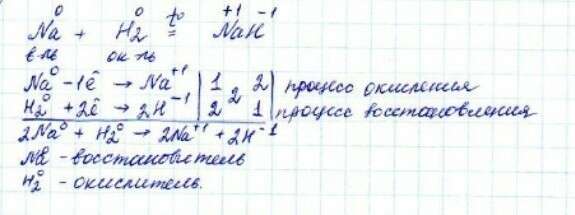 Na⁰ + H₂⁰ =^t° Na⁺¹H⁻¹
в-ль ок-ль
Na⁰ -1ē → Na⁺¹ | 1 | 2 | 2 | процесс окисления
H₂⁰ +2ē → 2H⁻¹ | 2 | 1 | процесс восстановления
2Na⁰ + H₂⁰ → 2Na⁺¹ + 2H⁻¹
Na⁰ - восстановитель
H₂⁰ - окислитель.